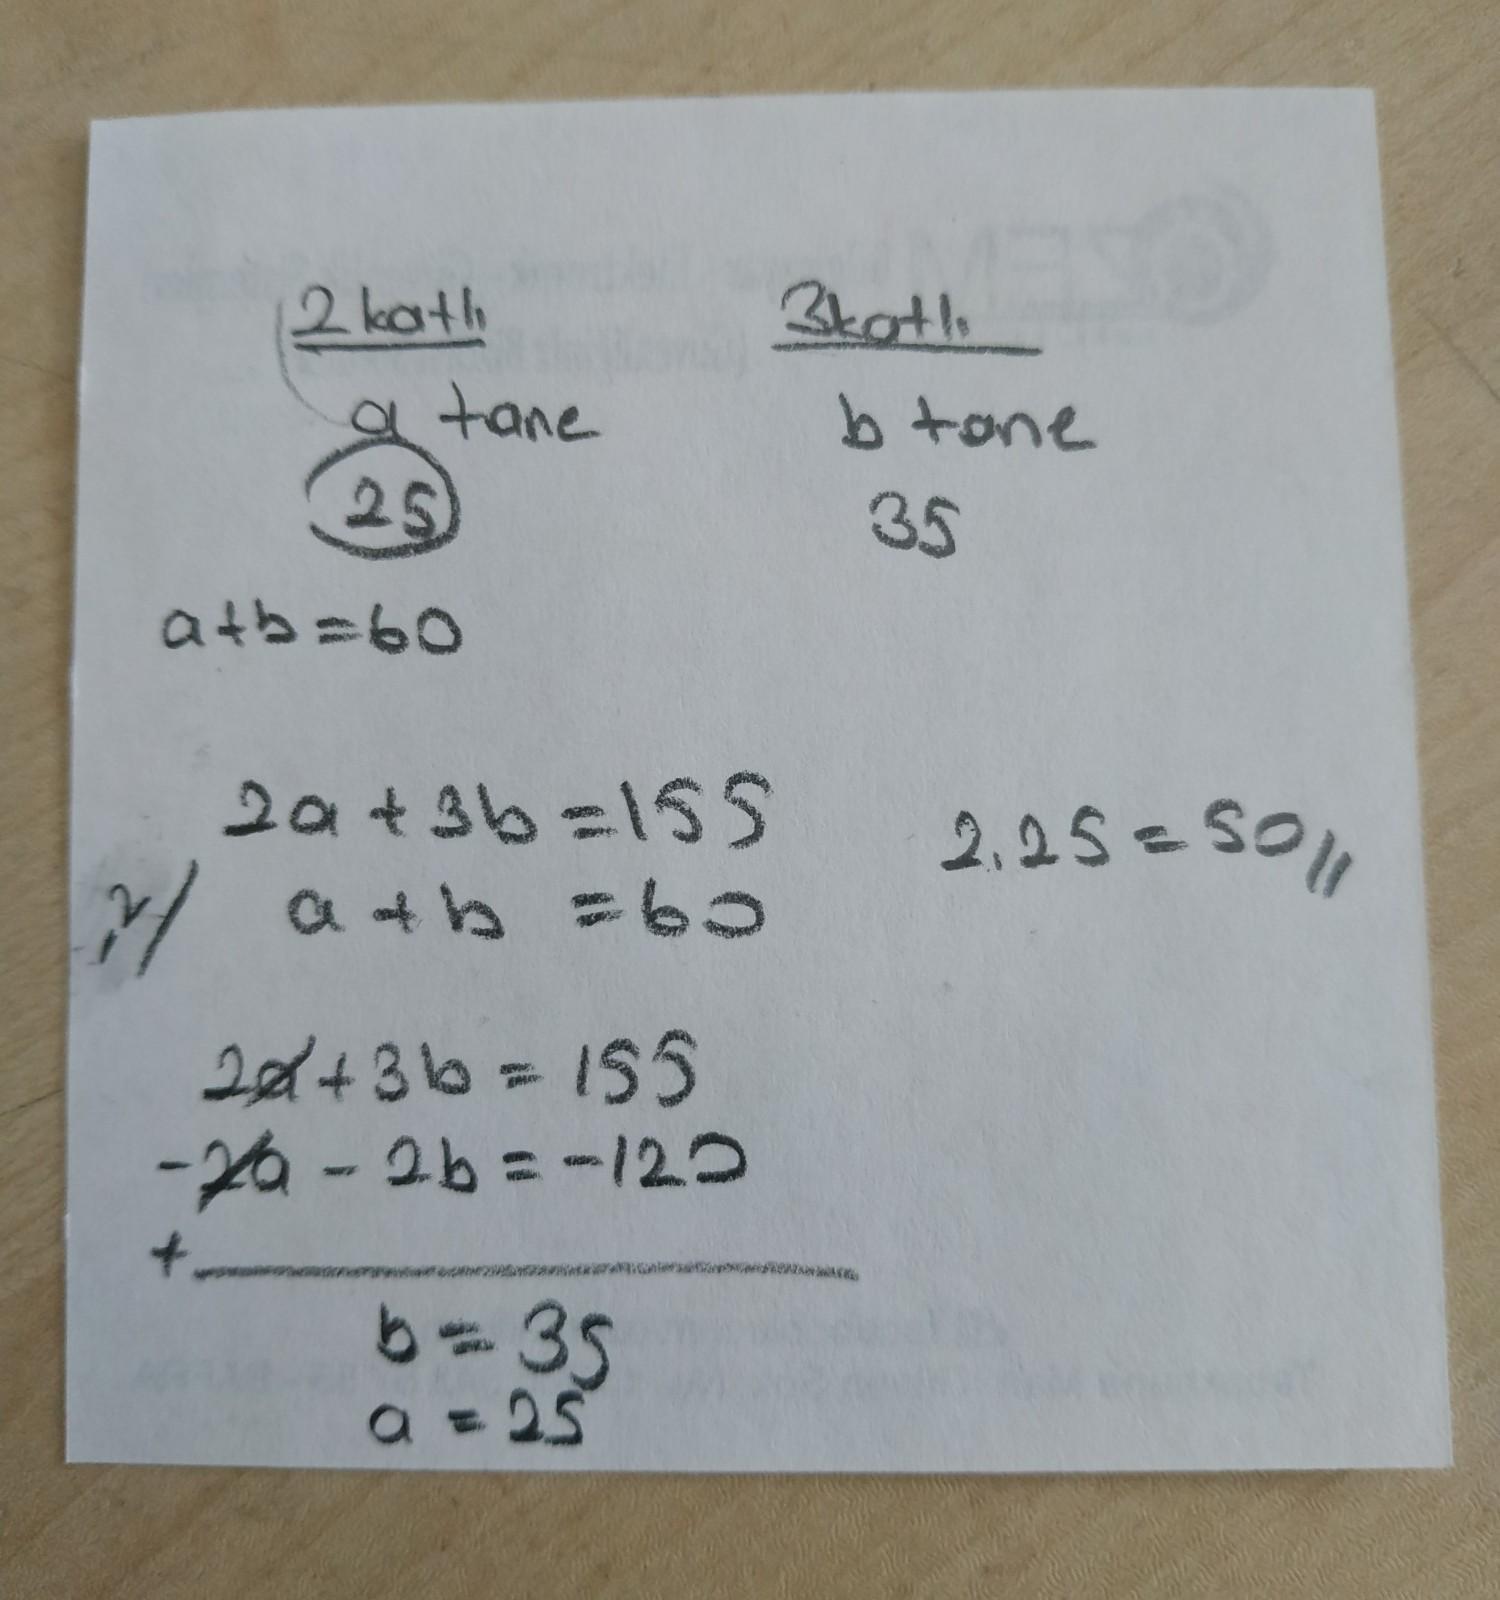 2 katlı 3katlı
a tane b tane
25 35
a+b=60
2a+3b=155 2.25=50//
a+b =60
2a+3b=155
-2a-2b=-120
+
b=35
a=25